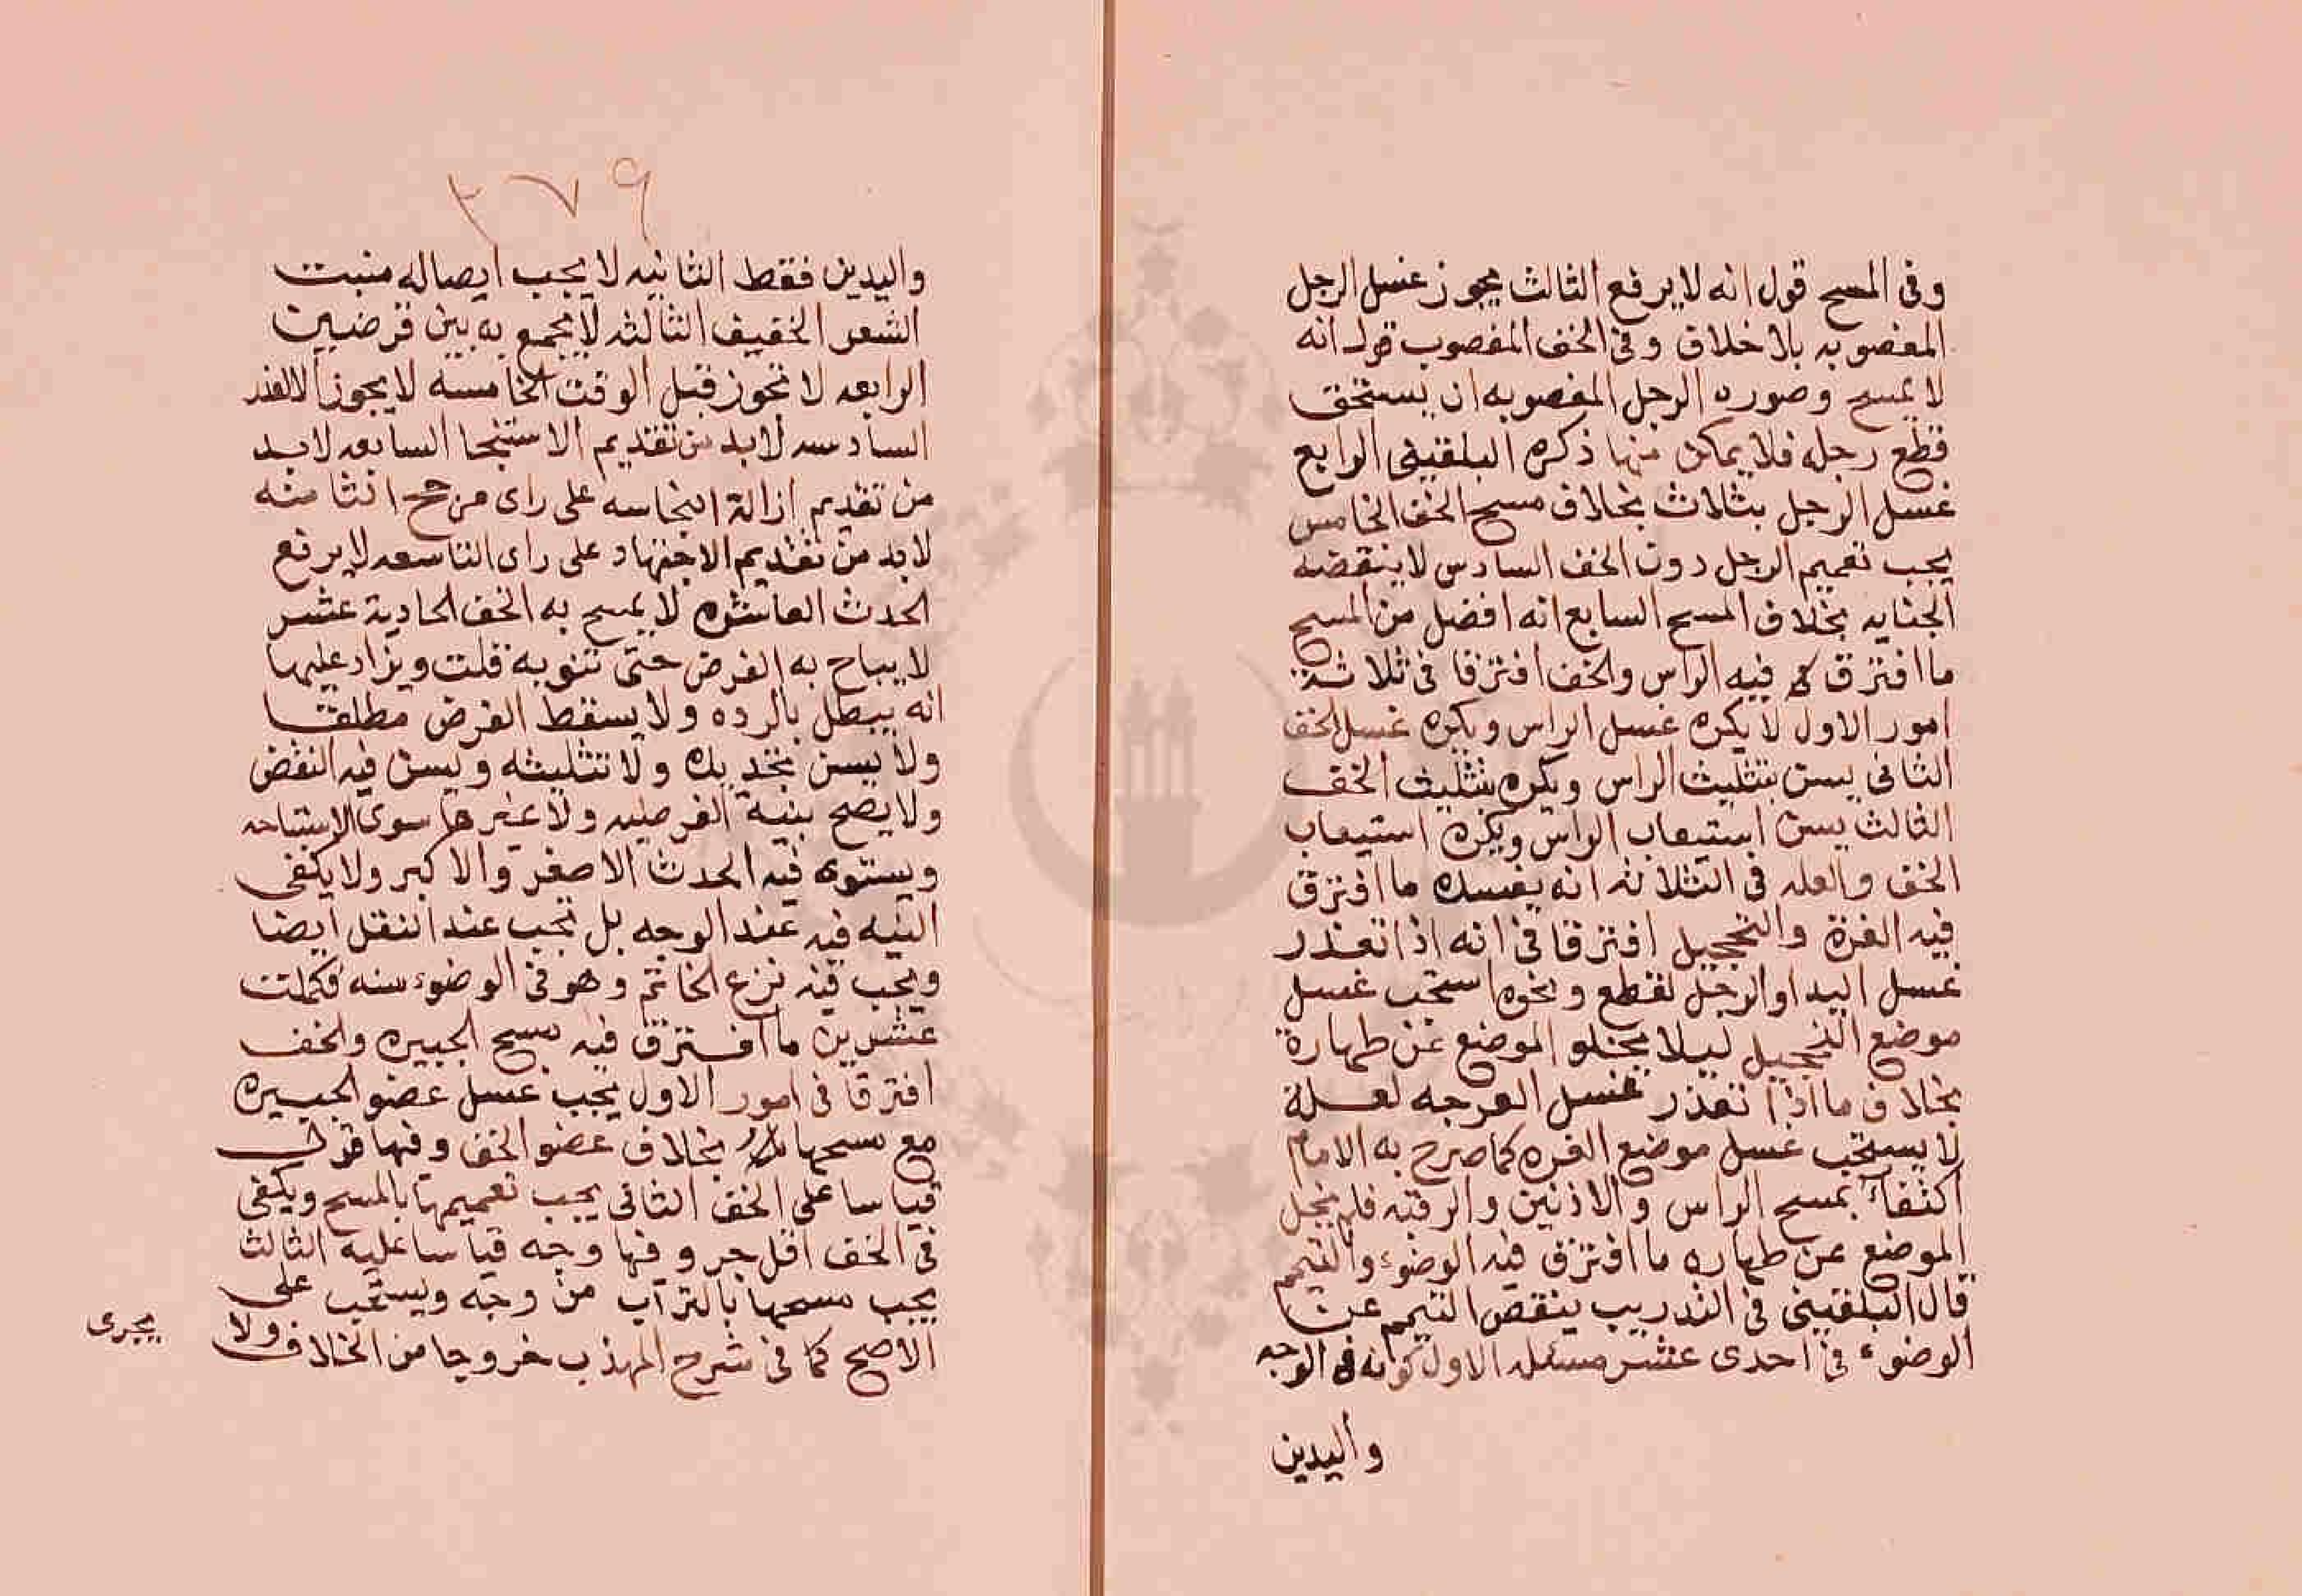 وفى المسح قول انه لا يرفع الثالث يجوز غسل الرجل
المغصوبه بلا خلاق وفى الخف المغصوب قول انه
لا يمسح وصوره الرجل المغصوبه ان يستحق
قطع رجله فلا يمكن منها ذكره البلقينى الرابع
غسل الرجل بثلاث بخلاف مسح الخف الخامس
يجب تعميم الرجل دون الخف السادس لا ينقضه
الجنابه بخلاف المسح السابع انه افضل من المسح
ما افترق فيه الراس والخف افترقا فى ثلاثة
امور الاول لا يكره غسل الراس ويكره غسل الخف
الثانى يسن تثليث الراس ويكره تثليث الخف
الثالث يسن استيعاب الراس ويكره استيعاب
الخف والعله فى الثلاثه انه يفسده ما افترق
فيه الغرة والتحجيل افترقا فى انه اذا تعذر
غسل اليد او الرجل لقطع ونحوه استحب غسل
موضع التحجيل ليلا يخلو الموضع عن طهارة
بخلاف ما اذا تعذر غسل الوجه لعلة
لا يستحب غسل موضع الغره كما صرح به الامام
اكتفاء بمسح الراس والاذنين والرقبه فلم يخل
الموضع عن طهاره ما افترق فيه الوضوء والتيمم
قال البلقينى فى التدريب ينقص التيمم عن
الوضوء فى احدى عشر مسئله الاول كونه فى الوجه
واليدين
٢٧٩
واليدين فقط الثانيه لا يجب ايصاله منبت
الشعر الخفيف الثالثه لا يجمع به بين فرضين
الرابعه لا تجوز قبل الوقت الخامسه لا يجوز الا لعذر
السادسه لا بد من تقديم الاستنجا السابعه لا بد
من تقديم ازالة النجاسه على راى مرجح الثامنه
لا بد من تقديم الاجتهاد على راى التاسعه لا يرفع
الحدث العاشره لا يمسح به الخف الحادية عشر
لا يباح به الفرض حتى تنويه قلت ويزاد عليها
انه يبطل بالرده ولا يسقط الفرض مطلقا
ولا يسن تجديده ولا تثليثه ويسن فيه النفض
ولا يصح بنية الفرضيه ولا غيرها سوى الاستباحه
ويستوى فيه الحدث الاصغر والاكبر ولا يكفى
النيه فيه عند الوجه بل تجب عند النقل ايضا
ويجب فيه نزع الخاتم وهو فى الوضوء سنه فكملت
عشرين ما افترق فيه مسح الجبيره والخف
افترقا فى امور الاول يجب غسل عضو الجبيره
مع مسحها بخلاف عضو الخف وفيها قول
قياسا على الخف الثانى يجب تعميمها بالمسح ويكفى
فى الخف اقل جزء وفيها وجه قياسا عليه الثالث
يجب مسحها بالتراب من وجه ويستحب على
الاصح كما فى شرح المهذب خروجا من الخلاف ولا
يجرى